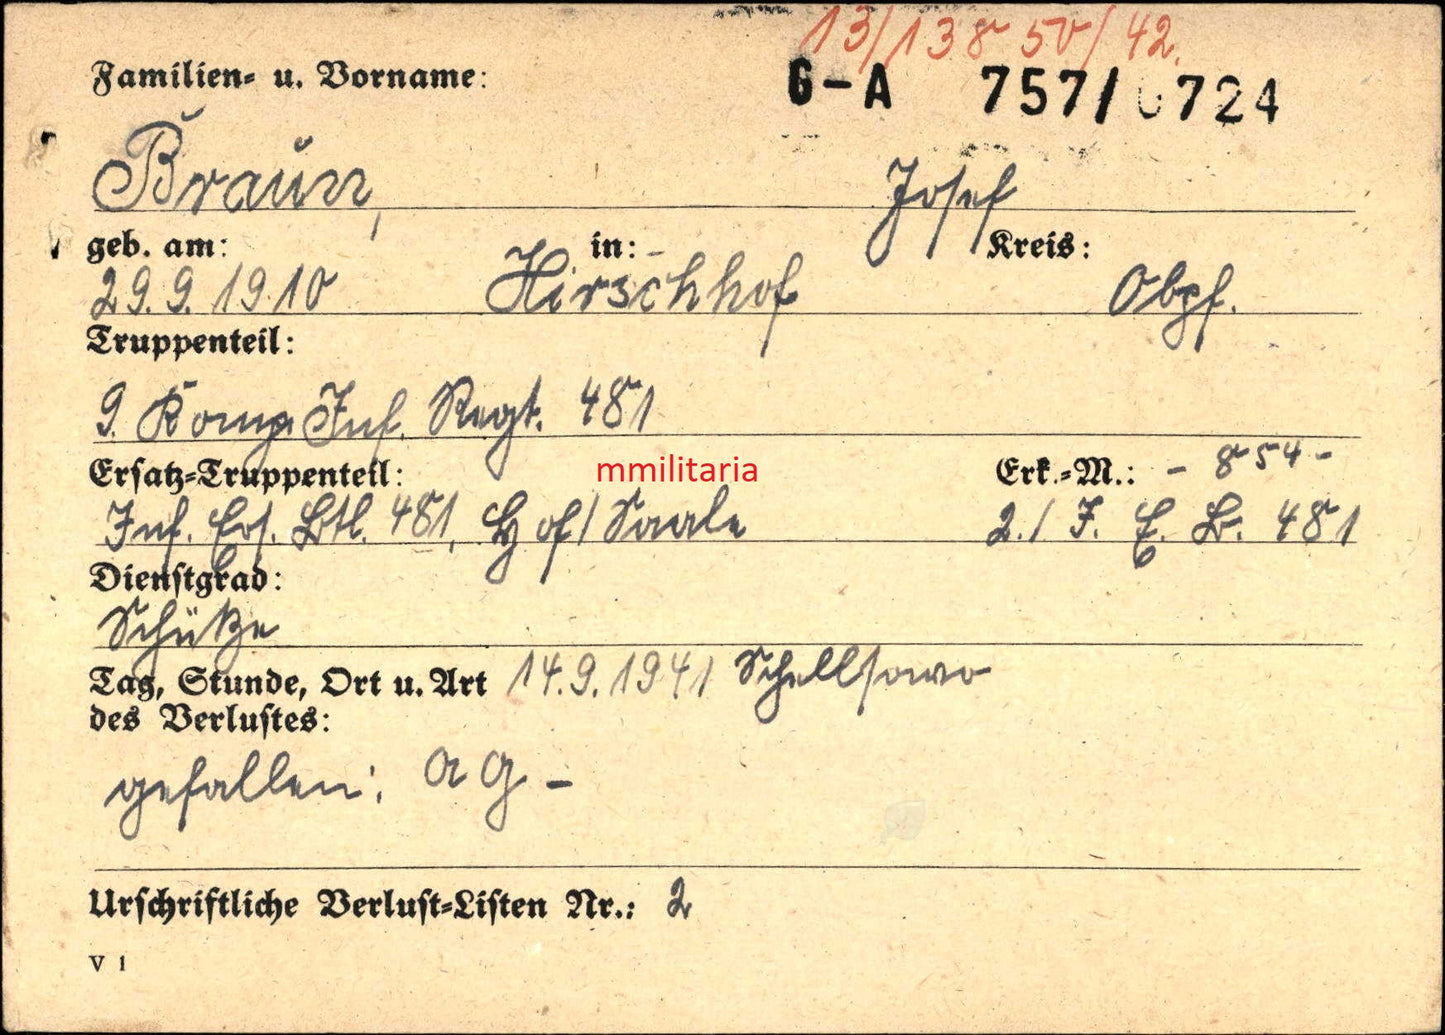 13/13850/42.
Familien- u. Vorname:
G-A 757/0724
Braun, Josef
geb. am: in: - Kreis:
29.9.1910 Hirschhof Obpf.
Truppenteil:
9. Komp. Inf. Regt. 481
Ersatz-Truppenteil: mmilitaria Erk.-M.: - 854 -
Inf. Ers. Btl. 481, Hof/Saale 2./ I. E. B. 481
Dienstgrad:
Schütze
Tag, Stunde, Ort u. Art 14.9.1941 Schellsowo
des Verlustes:
gefallen: AG -
Urschriftliche Verlust-Listen Nr.: 2
V 1